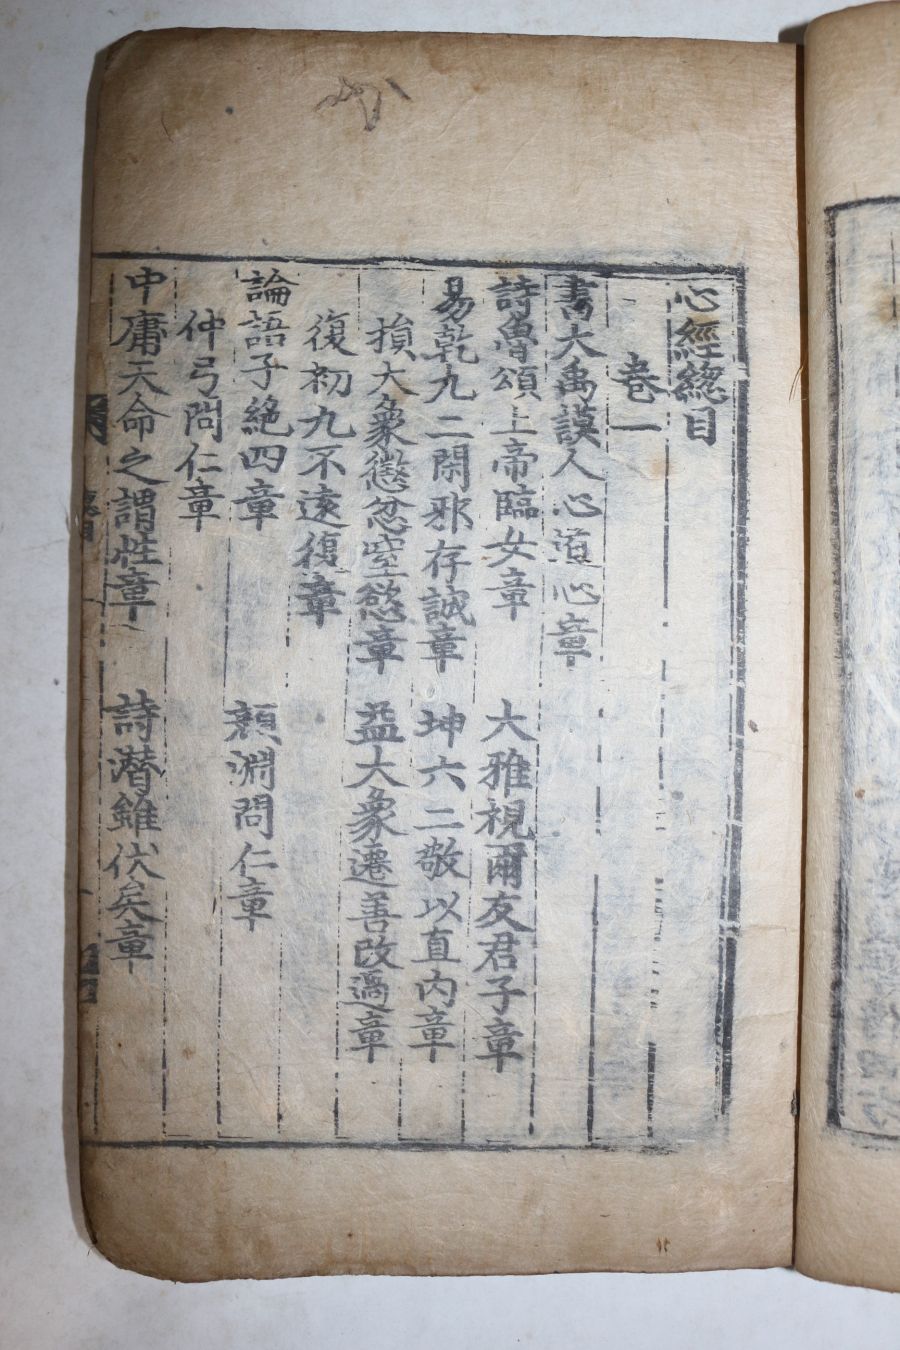 心經總目
卷一
書大禹謨人心道心章
詩魯頌上帝臨女章 大雅視爾友君子章
易乾九二閑邪存誠章 坤六二敬以直內章
損大象懲忿窒慾章 益大象遷善改過章
復初九不遠復章
論語子絶四章 顔淵問仁章
仲弓問仁章
中庸天命之謂性章 詩潛雖伏矣章